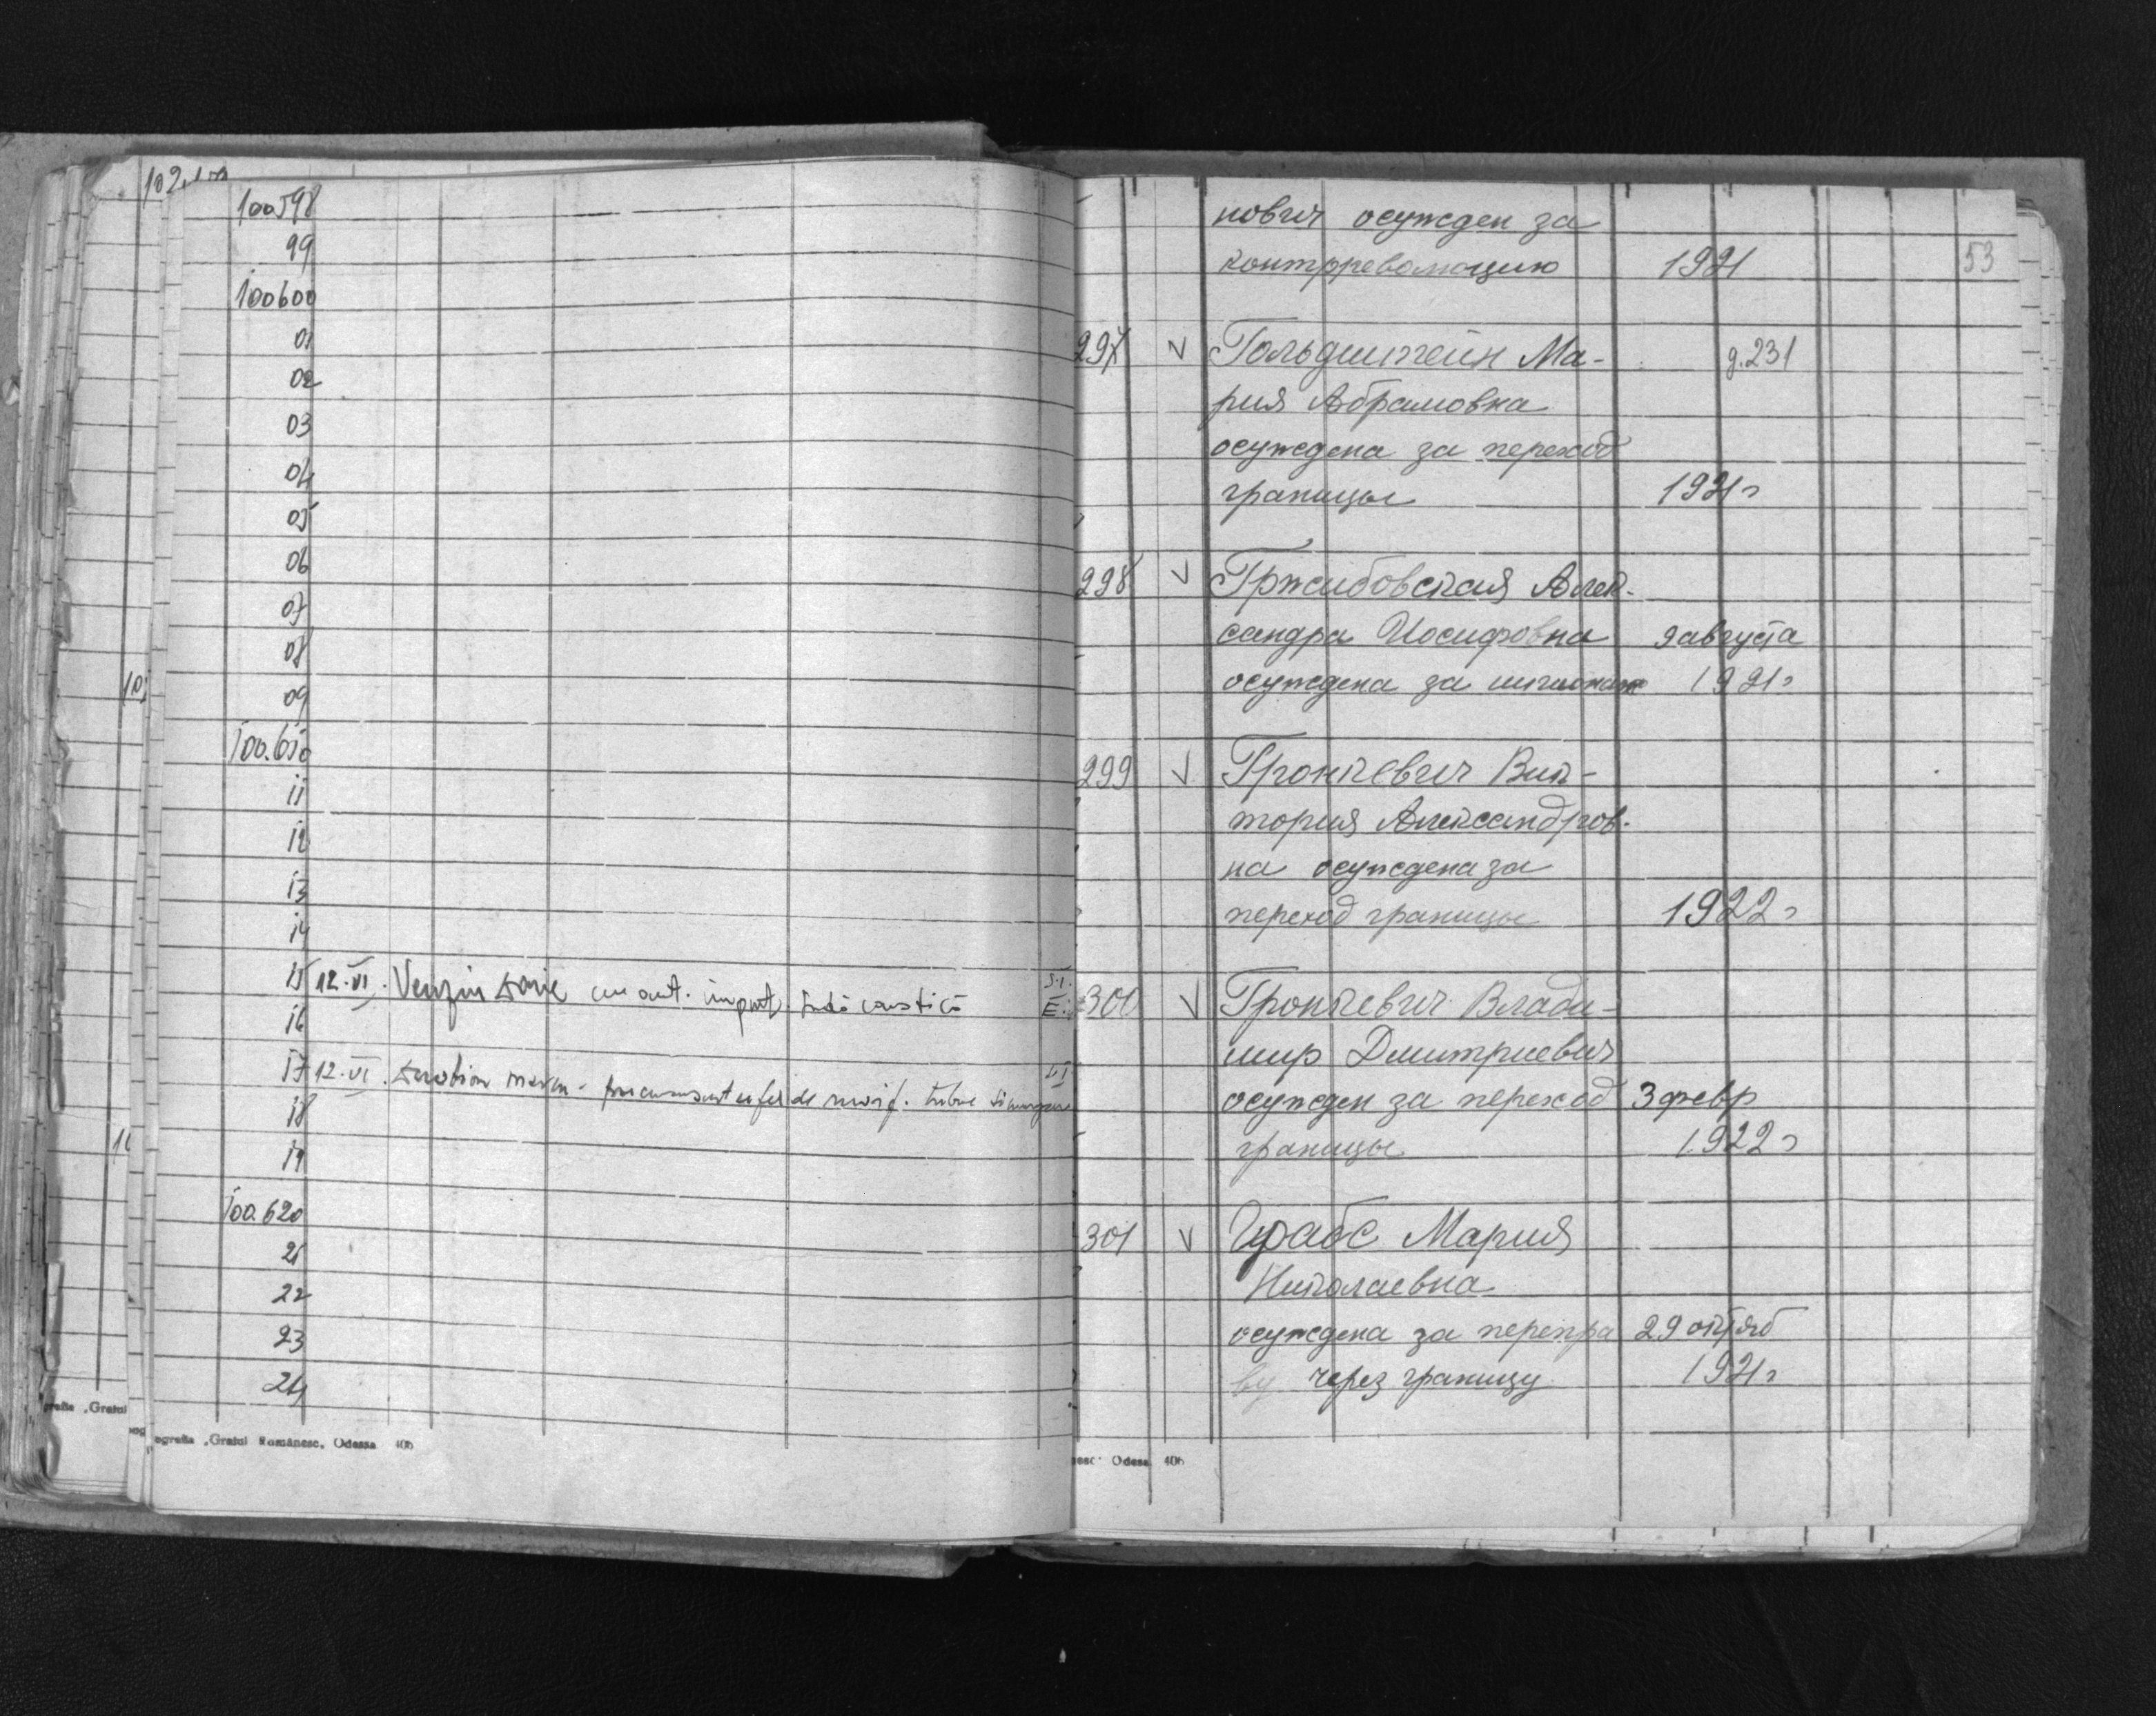 102.1
100598
99
100600
01
02
03
04
05
06
07
08
09
100.610
11
12
13
14
15 12.VI.
16
17 12.VI.
18
19
100.620
21
22
23
24
ografia „Graiul Românesc, Odessa 406
нович осужден за
контрреволюцию 1921 53
297 V Гольдштейн Ма- д.231
рия Абрамовна
осуждена за переход
границы 1921 г
298 V Гржибовская Алек-
сандра Иосифовна 9 августа
осуждена за шпионаж 1921 г
299 V Гронкевич Вик-
тория Александров-
на осуждена за
переход границы 1922 г
300 V Гронкевич Влади-
мир Дмитриевич
осужден за переход 3 февр
границы 1922 г
301 V Грабе Мария
Николаевна
осуждена за перепра 29 октяб
ву через границу 1921 г
Odessa 406